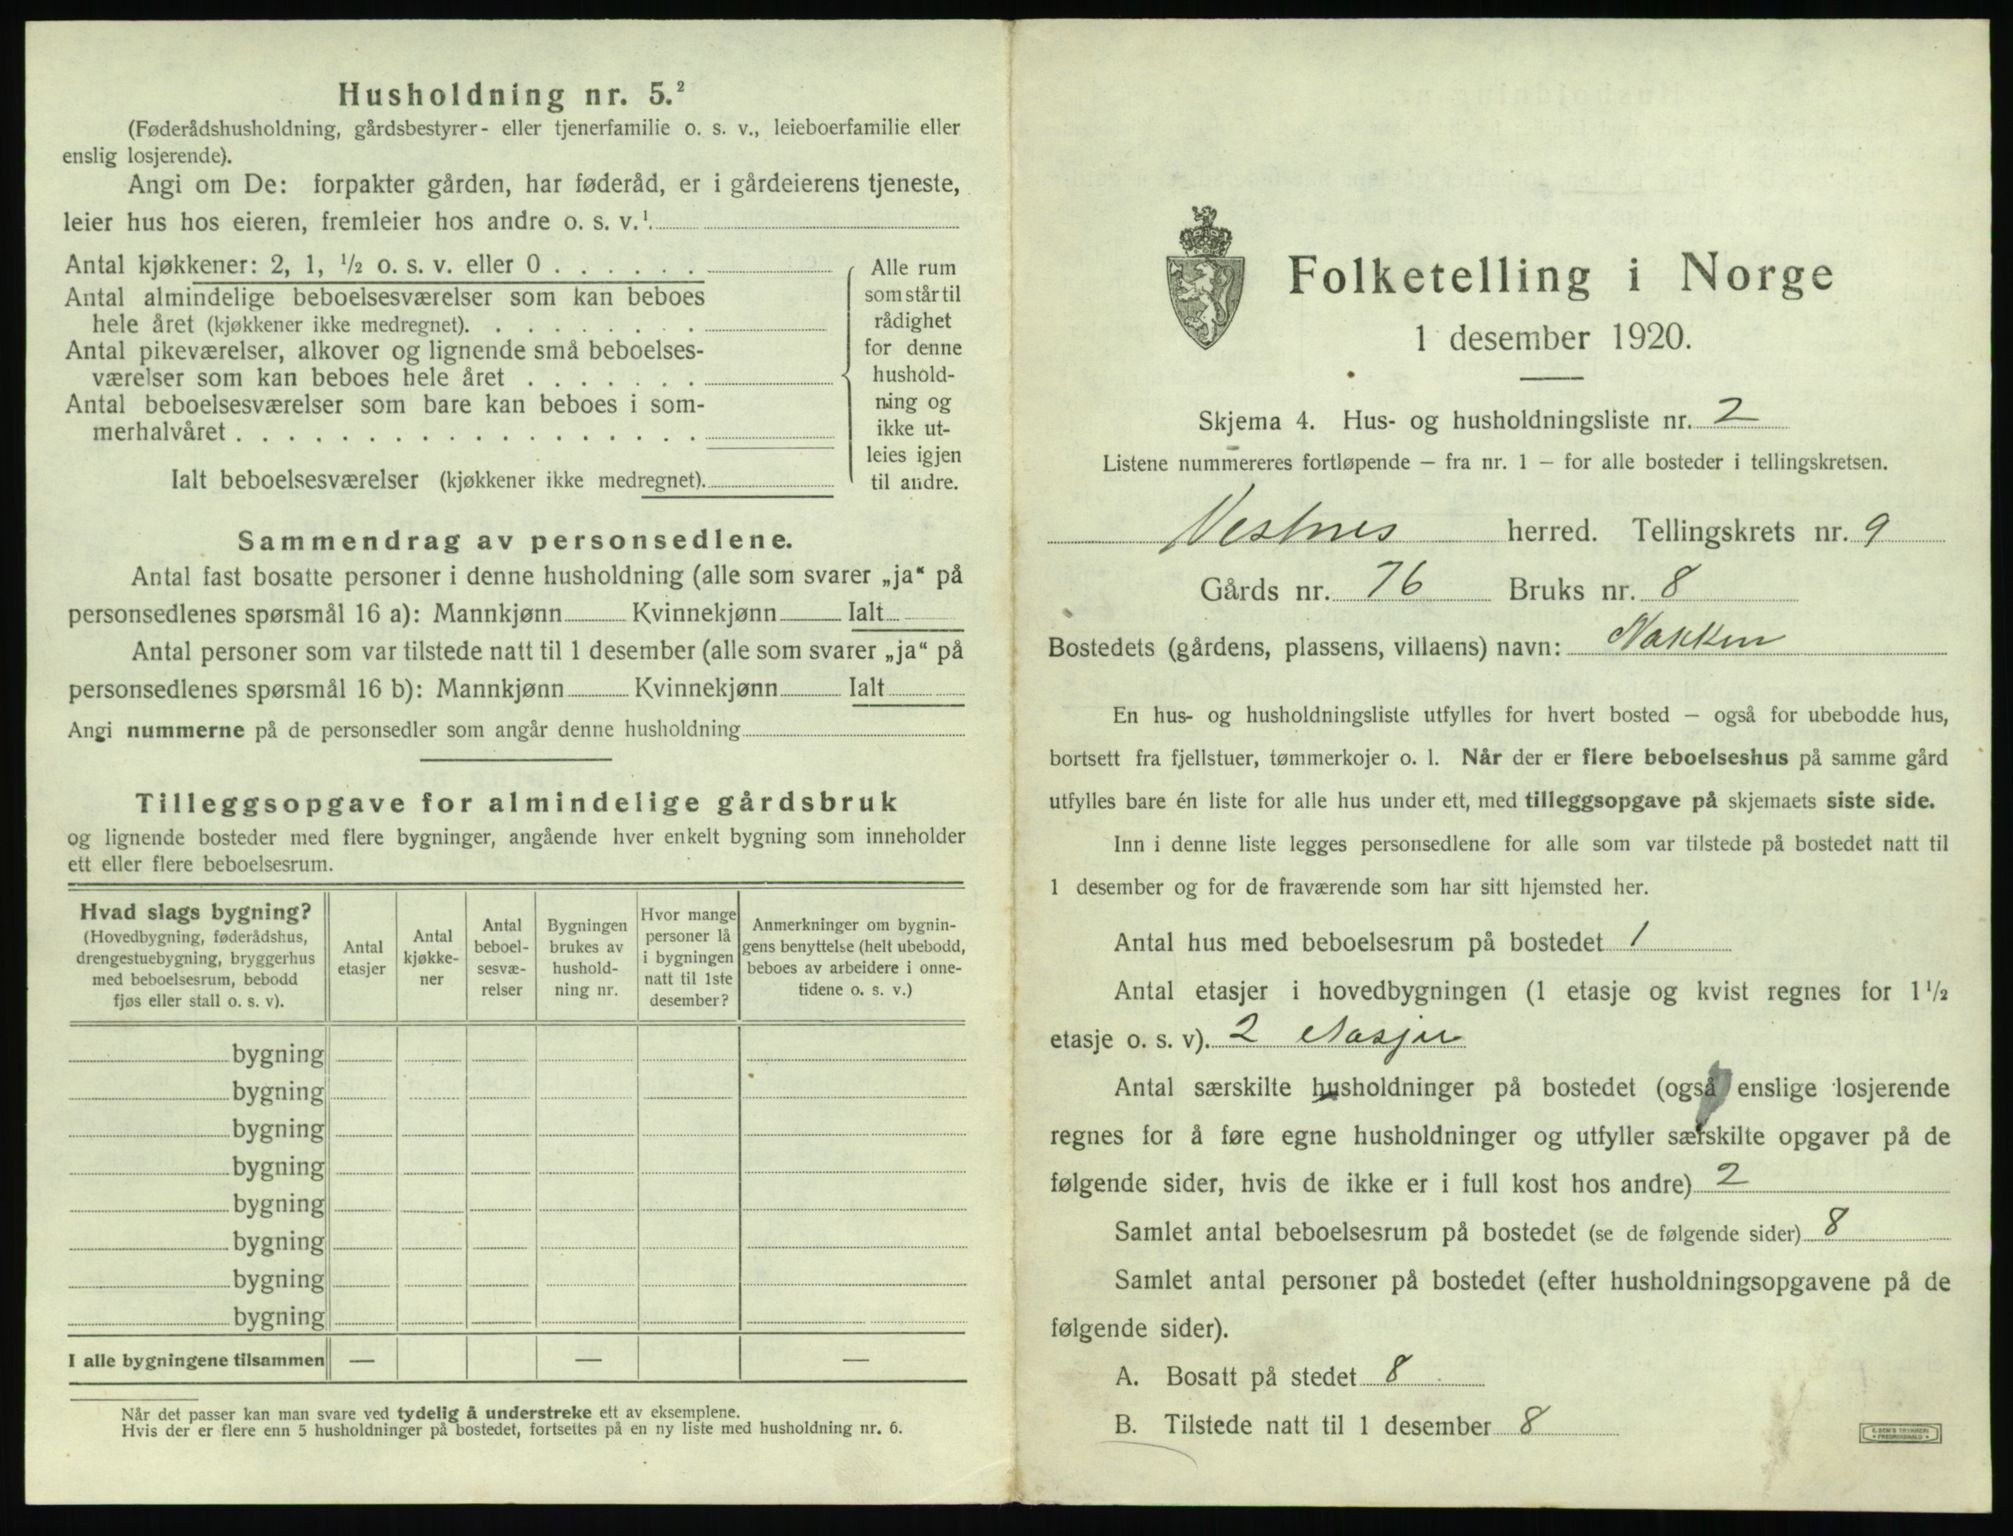 Husholdning nr. 5.²
(Føderådshusholdning, gårdsbestyrer- eller tjenerfamilie o. s. v., leieboerfamilie eller
enslig losjerende).
Angi om De: forpakter gården, har føderåd, er i gårdeierens tjeneste,
leier hus hos eieren, fremleier hos andre o. s. v.¹
Antal kjøkkener: 2, 1, ½ o. s. v. eller 0
Antal almindelige beboelsesværelser som kan beboes
hele året (kjøkkener ikke medregnet).
Antal pikeværelser, alkover og lignende små beboelses-
værelser som kan beboes hele året
Antal beboelsesværelser som bare kan beboes i som-
merhalvåret
Ialt beboelsesværelser (kjøkkener ikke medregnet).
Alle rum
som står til
rådighet
for denne
hushold-
ning og
ikke ut-
leies igjen
til andre.
Sammendrag av personsedlene.
Antal fast bosatte personer i denne husholdning (alle som svarer „ja“ på
personsedlenes spørsmål 16 a): Mannkjønn Kvinnekjønn Ialt
Antal personer som var tilstede natt til 1 desember (alle som svarer „ja“ på
personsedlenes spørsmål 16 b): Mannkjønn Kvinnekjønn Ialt
Angi nummerne på de personsedler som angår denne husholdning
Tilleggsopgave for almindelige gårdsbruk
og lignende bosteder med flere bygninger, angående hver enkelt bygning som inneholder
ett eller flere beboelsesrum.
Hvad slags bygning?
(Hovedbygning, føderådshus,
drengestuebygning, bryggerhus
med beboelsesrum, bebodd
fjøs eller stall o. s. v).
Antal
etasjer
Antal
kjøkke-
ner
Antal
beboel-
sesvæ-
relser
Bygningen
brukes av
hushold-
ning nr.
Hvor mange
personer lå
i bygningen
natt til 1ste
desember?
Anmerkninger om bygnin-
gens benyttelse (helt ubebodd,
beboes av arbeidere i onne-
tidene o. s. v.)
bygning
bygning
bygning
bygning
bygning
bygning
bygning
bygning
I alle bygningene tilsammen — — —
Når det passer kan man svare ved tydelig å understreke ett av eksemplene.
Hvis der er flere enn 5 husholdninger på bostedet, fortsettes på en ny liste med husholdning nr. 6.
Folketelling i Norge
1 desember 1920.
Skjema 4. Hus- og husholdningsliste nr. 2
Listene nummereres fortløpende – fra nr. 1 – for alle bosteder i tellingskretsen.
Vestnes herred. Tellingskrets nr. 9
Gårds nr. 76 Bruks nr. 8
Bostedets (gårdens, plassens, villaens) navn: Nakken
En hus- og husholdningsliste utfylles for hvert bosted – også for ubebodde hus,
bortsett fra fjellstuer, tømmerkojer o. l. Når der er flere beboelseshus på samme gård
utfylles bare én liste for alle hus under ett, med tilleggsopgave på skjemaets siste side.
Inn i denne liste legges personsedlene for alle som var tilstede på bostedet natt til
1 desember og for de fraværende som har sitt hjemsted her.
Antal hus med beboelsesrum på bostedet 1
Antal etasjer i hovedbygningen (1 etasje og kvist regnes for 1½
etasje o. s. v). 2 etasjer
Antal særskilte husholdninger på bostedet (også enslige losjerende
regnes for å føre egne husholdninger og utfyller særskilte opgaver på de
følgende sider, hvis de ikke er i full kost hos andre) 2
Samlet antal beboelsesrum på bostedet (se de følgende sider) 8
Samlet antal personer på bostedet (efter husholdningsopgavene på de
følgende sider).
A. Bosatt på stedet 8
B. Tilstede natt til 1 desember 8